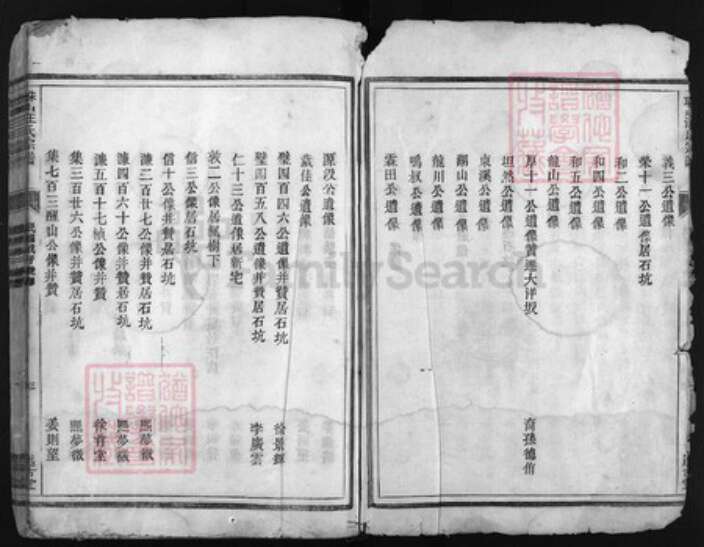 義三公遺像
榮十一公遺像居石坑
和二公遺像
和四公遺像
和五公遺像
龍山公遺像
厚十一公遺像贊遷大洋坂 裔孫德侑
坦然公遺像
東溪公遺像
湖山公遺像
龍川公遺像
鳴叔公遺像
霖田公遺像
公遺像
公遺像
璧四百四六公遺像并贊居石坑
璧四百五八公遺像并贊居石坑 李廣雲
仁十三公遺像居新宅
敦二公像居楓樹下
信三公像居石坑
信十公像并贊居石坑
濂二百廿七公像并贊居石坑 熙夢徵
濂四百六十公像并贊居石坑 熙夢徵
濂五百十七楨公像并贊 徐肯堂
集三百廿六公像并贊居石坑 熙夢徵
集七百三醒山公像并贊 姜則望
FamilySearch